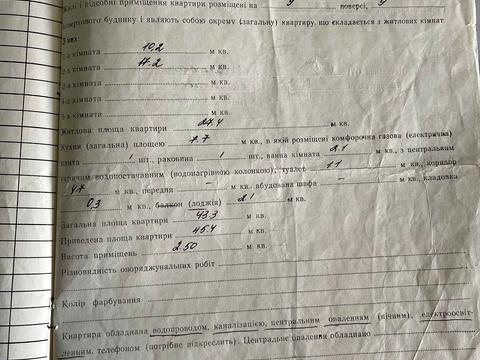 Жилі і підсобні приміщення квартири розміщені на поверсі,
поверхового будинку і являють собою окрему (загальну) квартиру, що складається з житлових кімнат.
З них:
1-а кімната 10,2 м кв.
2-а кімната 17.2 м кв.
2-а кімната м кв.
4-а кімната м кв.
5-а кімната м кв.
Житлова площа квартири 27.4 м кв.
Кухня (загальна) площею 7.7 м кв., в якій розміщені комфорочна газова (електрична)
плита 1 шт., раковина 1 шт., ванна кімната 2.1 м кв., з центральним
гарячим водопостачанням (водонагрівною колонкою); туалет 1.1 м кв., коридор
4.7 м кв., передня – м кв., вбудована шафа – м кв., кладовка
0,3 м кв., балкон (лоджія) м кв.
Загальна площа квартири 43.3 м кв.
Приведена площа квартири 45.4 м кв.
Висота приміщень 2.50 м кв.
Різновидність опоряджувальних робіт
Колір фарбування
Квартира обладнана водопроводом, каналізацією, центральним опаленням (пічним), електроосвіт-
ленням, телефоном (потрібне підкреслить). Центральне опалення обладнано